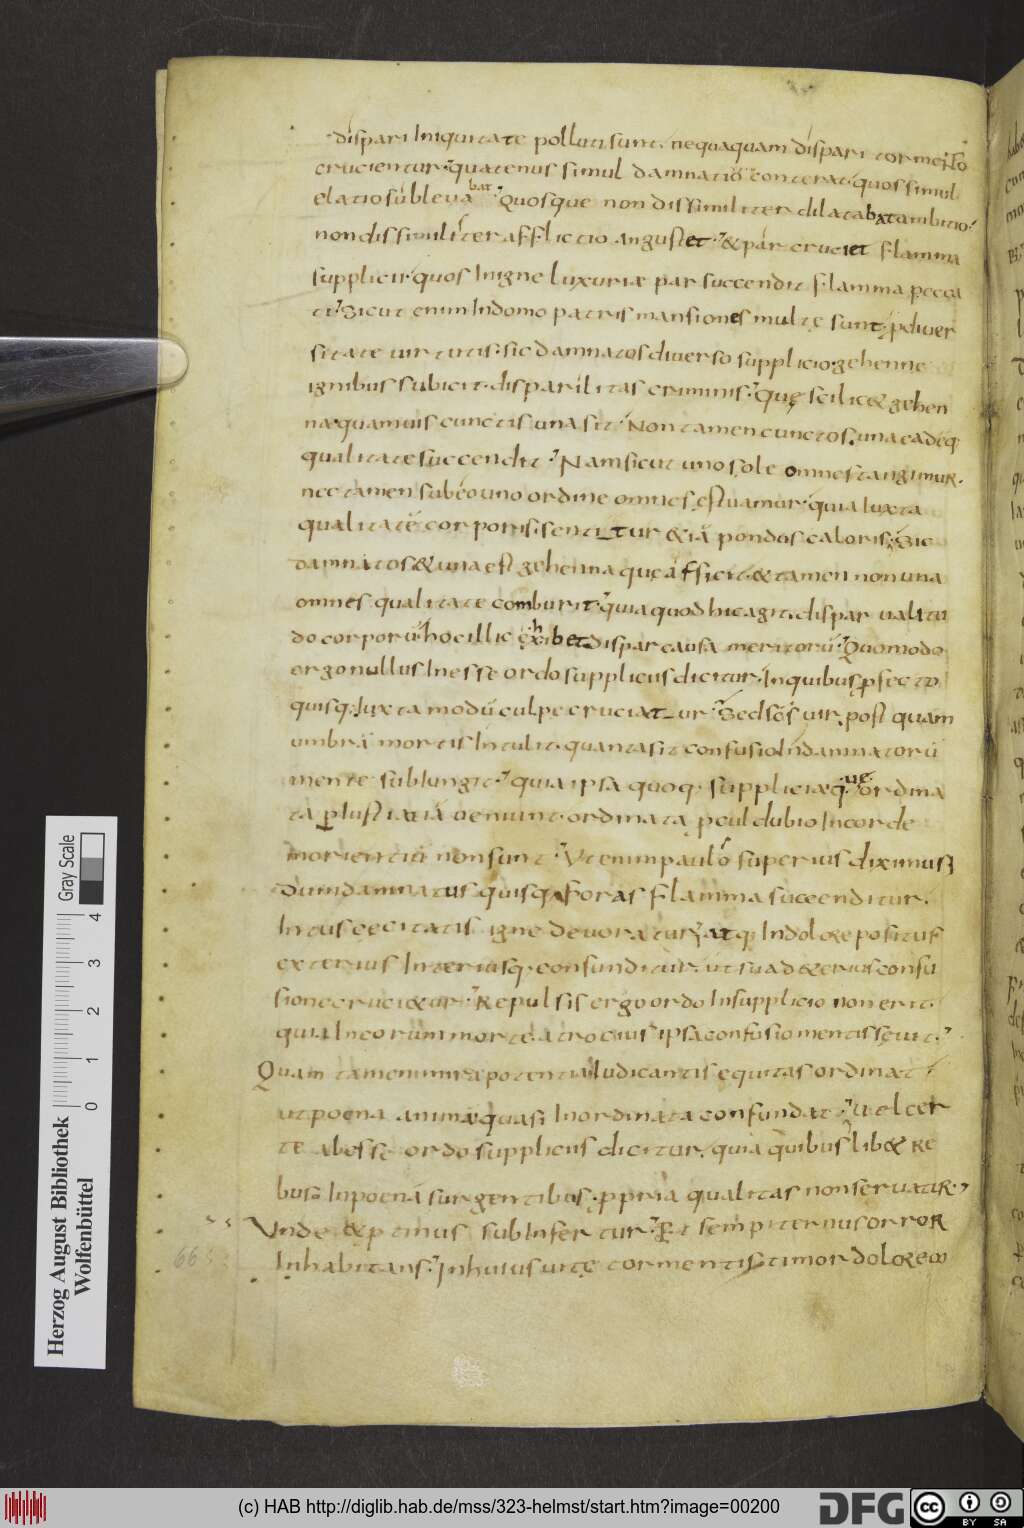 dispari Iniquitate polluti sunt. nequaquam dispari tormento
crucientur. quatenus simul damnatio conterat. quos simul
elatio subleuabat. Quosque non dissimiliter dilatabat ambitio.
non dissimiliter afflictio angustet. & par cruciet flamma
supplicii. quos Inigne luxuriæ par succendit flamma pecca
ti. Sicut enim Indomo patris mansiones multę sunt. p diuer
sitate uirtutis. sic damnatos diuerso supplicio gehenne
ignibus subicit. disparilitas criminis. Quę scilic& gehen
næ quamuis cunctis una sit. Non tamen cunctos una eadēq;
qualitate succendit. Nam sicut uno sole omnes tangimur.
nec tamen sub eo uno ordine omnes ęstuamur. quia Iuxta
qualitatē corporis. sentitur &iā pondos caloris. Sic
damnatos & una est gehenna quę afficit. & tamen non una
omnes qualitate comburit. quia quod hic agit. dispar ualitu
do corporū. hoc illic exhibet dispar causa meritorū. Quomodo
ergo nullus Inesse ordo suppliciis dicitur. In quibus pfecto
quisq; Iuxta modū culpe cruciatur. Sed scs uir post quam
umbrā mortis Intulit. quanta sit confusio Indamnatorū
mente subIungit. quia ipsa quoq; supplicia que ordina
ta p Iustitiā ueniunt. ordinata pcul dubio Incorde
morientiū non sunt. Vt enim paulo superius diximus;
Dum damnatus quisq; foras flamma succenditur.
Intus cęcitatis igne deuoratur. atq; Indolore positus
exterius Interiusq; confunditur. ut sua deterius confu
sione cruci&ur. Repulsis ergo ordo Insupplicio non erit.
quia Ineorum morte atrocius ipsa confusio mentis sęuit.
Quam tamen mira potentia Iudicantis equitas ordinat.
ut poena animā quasi Inordinata confundat. Vel cer
te abesse ordo suppliciis dicitur. quia quibuslib& Re
bus Inpoenā surgentibus. ppria qualitas non seruatur.
Vnde & ptinus subInfertur. Et sempiternus orror
Inhabitans. Inhuius uitę tormentis timor dolorem
66
Herzog August Bibliothek
Wolfenbüttel
Gray Scale
0 1 2 3 4
(c) HAB http://diglib.hab.de/mss/323-helmst/start.htm?image=00200
DFG
cc BY SA